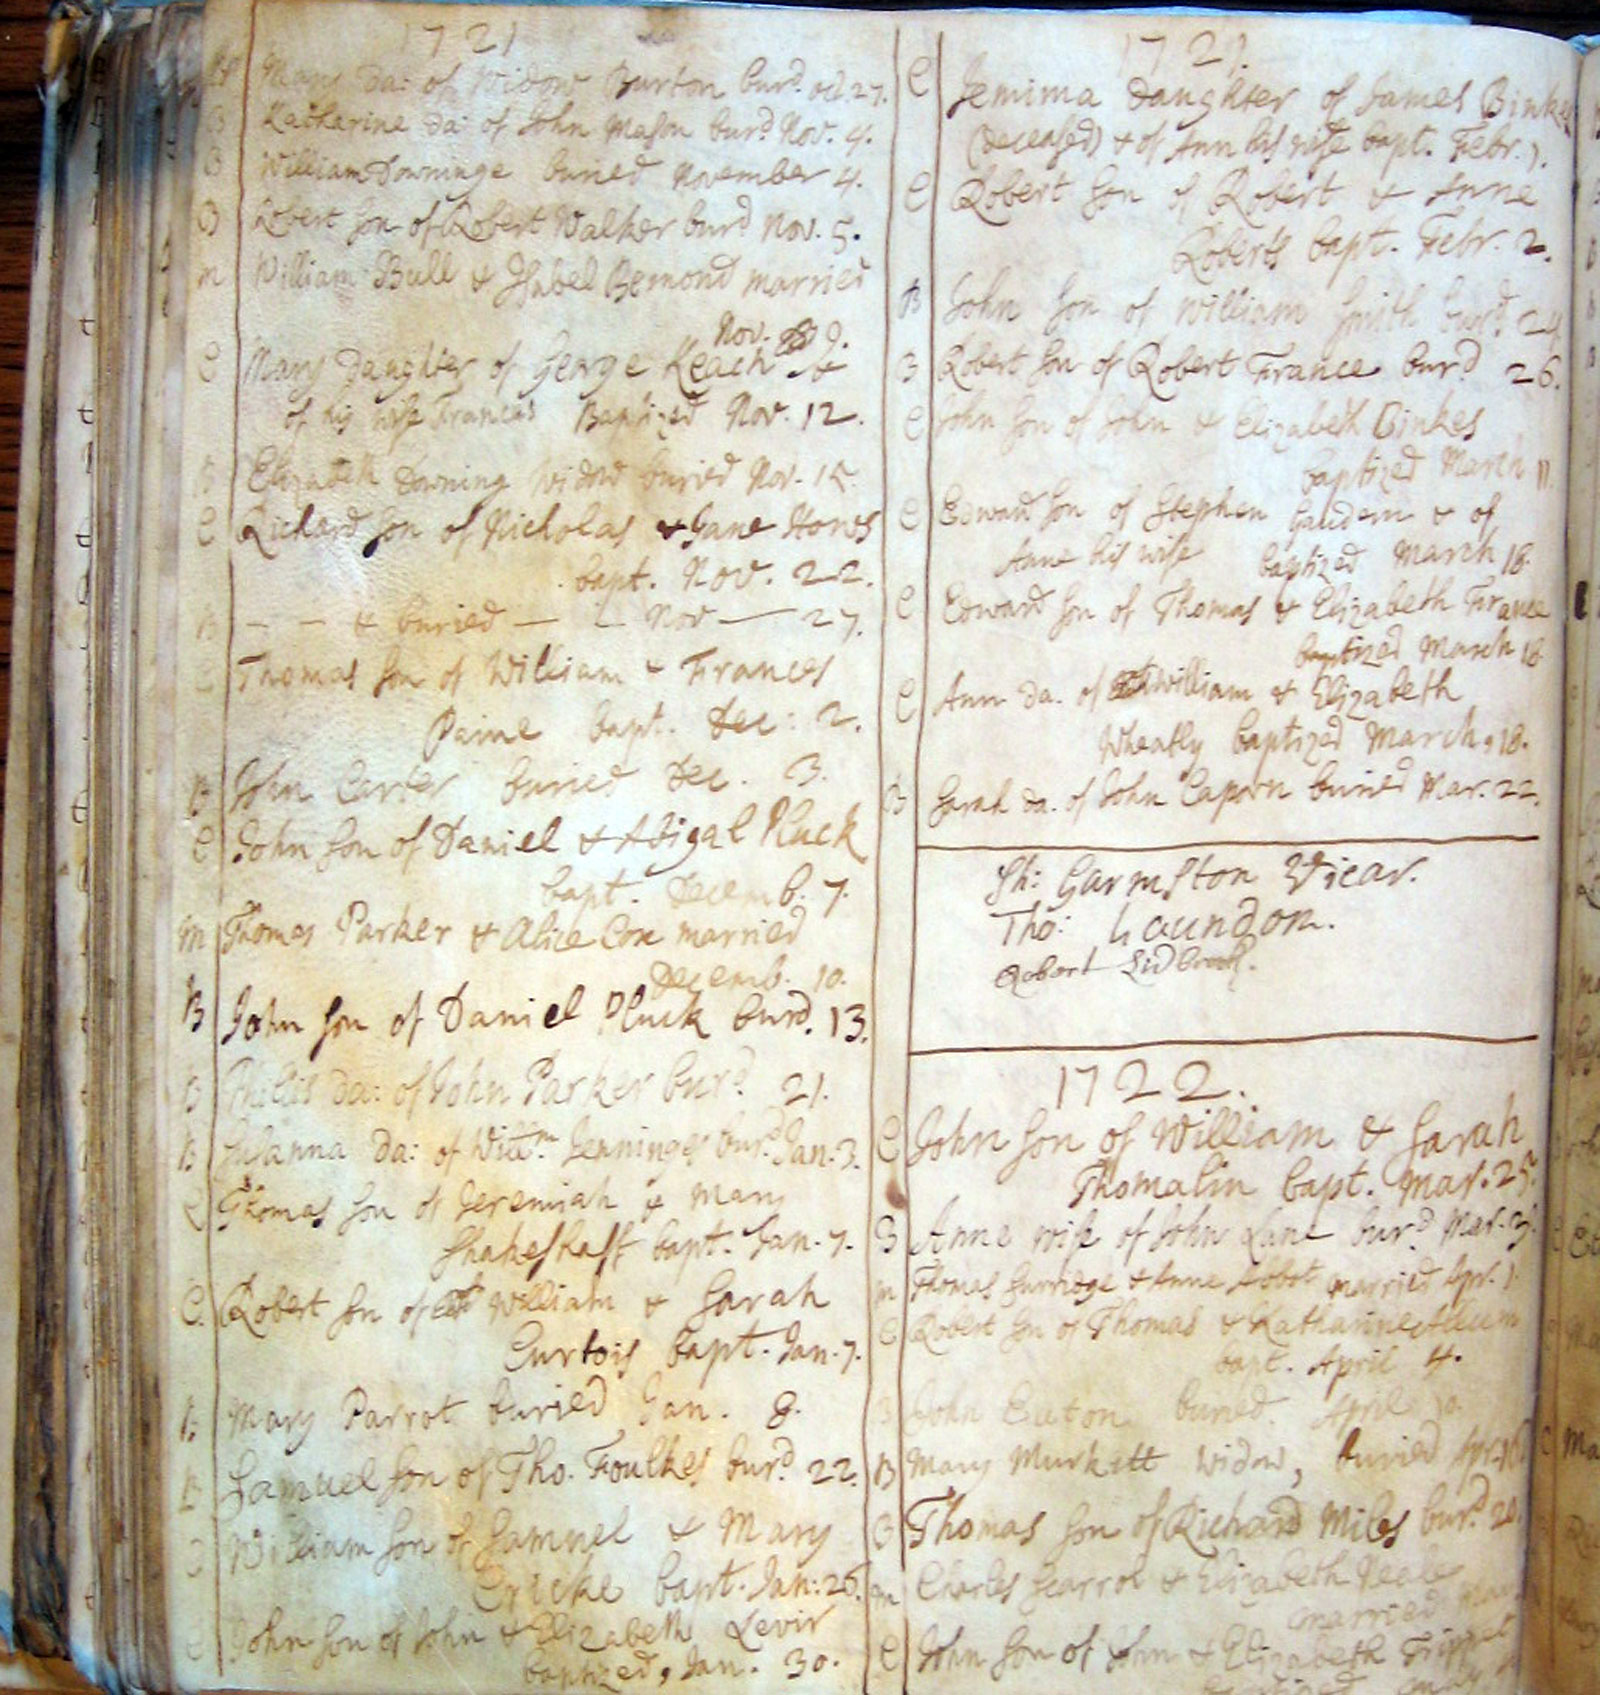 1721
B Mary da: of Widow Burton bur.d oct. 27.
B Katharine da: of John Mason bur.d Nov. 4.
B William Downinge buried November 4.
B Robert son of Robert Walker bur.d Nov. 5.
m William Bull & Isabel Bemond married
Nov. 9.
C Mary Daughter of George Keach &
of his wife Frances Baptized Nov. 12.
B Elizabeth Downing Widow buried Nov. 15.
C Richard son of Nicholas & Jane Hones
bapt. Nov. 22.
B — — & buried — — Nov — 27.
C Thomas son of William & Frances
Paine bapt. Dec: 2.
B John Carter buried Dec. 3.
C John son of Daniel & Abigal Pluck
bapt. Decemb. 7.
m Thomas Parker & Alice Cox married
Decemb. 10.
B John son of Daniel Pluck burd. 13.
B da: of John Parker bur.d 21.
B Susanna da: of Will.m Jenninges bur.d Jan. 3.
C Thomas son of Jeremiah & Mary
Shakeshaft bapt. Jan. 7.
C. Robert son of William & Sarah
Curtois bapt. Jan. 7.
B Mary Parrot buried Jan. 8.
B Samuel son of Tho. Foulkes bur.d 22.
C William son of Samuel & Mary
Cricke bapt. Jan: 26.
C John son of John & Elizabeth Levir
baptized, Jan. 30.
1721.
C Jemima Daughter of James Binkes
(deceased) & of Ann his wife bapt. Febr. 1.
C Robert son of Robert & Anne
Roberts bapt. Febr. 2.
B John son of William Smith bur.d 24
B Robert son of Robert France bur.d 26.
C John son of John & Elizabeth Binkes
baptized March 11.
C Edward son of Stephen Gaudern & of
Anne his wife baptized March 18.
C Edward son of Thomas & Elizabeth France
baptized March 18
C Ann da. of William & Elizabeth
Wheatly baptized March, 18.
B Sarah da. of John Caporn buried Mar. 22.
Sh: Garmston Vicar.
Tho: Laundon.
Robert Sidbrook.
1722.
C John son of William & Sarah
Thomalin bapt. Mar. 25.
B Anne wife of John Lane bur.d Mar.
m Thomas Surridge & Anne Abbot married Apr. 1
C Robert son of Thomas & Katharine
bapt. April 4.
B John buried April 10.
B Mary Murkitt Widow, buried Apr.
B Thomas son of Richard Miles bur.d 20.
m Charles & Elizabeth Neale
married
C John son of John & Elizabeth